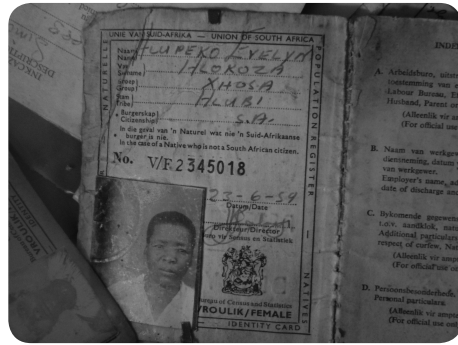 UNIE VAN SUID-AFRIKA — UNION OF SOUTH AFRICA
NATURELLE
POPULATION REGISTER
NATIVES
Naam
Name
EVELYN
Van
Surname
HLOKOZA
Groep
Group
XHOSA
Stam
Tribe
HLUBI
Burgerskap
Citizenship
S.A.
In die geval van 'n Naturel wat nie 'n Suid-Afrikaanse
burger is nie.
In the case of a Native who is not a South African citizen.
No. V/F 2345018
23-6-59
Datum/Date
Direkteur/Director
Buro vir Sensus en Statistiek
Bureau of Census and Statistics
VROULIK/FEMALE
IDENTITY CARD
VROULIK
A. Arbeidsburo,
toestemming van
Labour Bureau,
Husband, Parent or
(Alleenlik vir
(For official use
B. Naam van werkgewer,
dienneming, datum
van werkgewer.
Employer's name,
date of discharge and
C. Bykomende
i.o.v. aandklok,
Additional particulars
respect of curfew,
(Alleenlik vir
(For official use
D. Persoonsbesonderhede.
Personal particulars.
(Alleenlik vir
(For official use